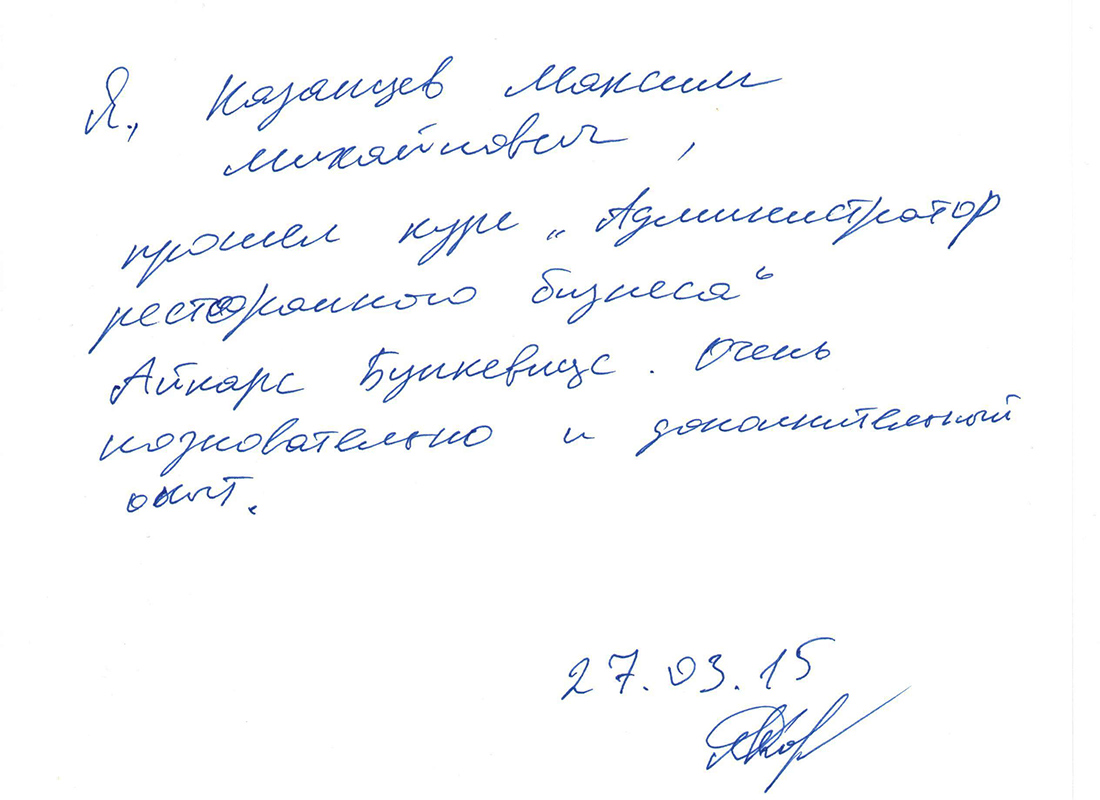 Я, Казанцев Максим
Михайлович,
прошел курс „Администратор
ресторанного бизнеса“
Айнарс Бункевицс. Очень
познавательно и дополнительный
опыт.
27.03.15